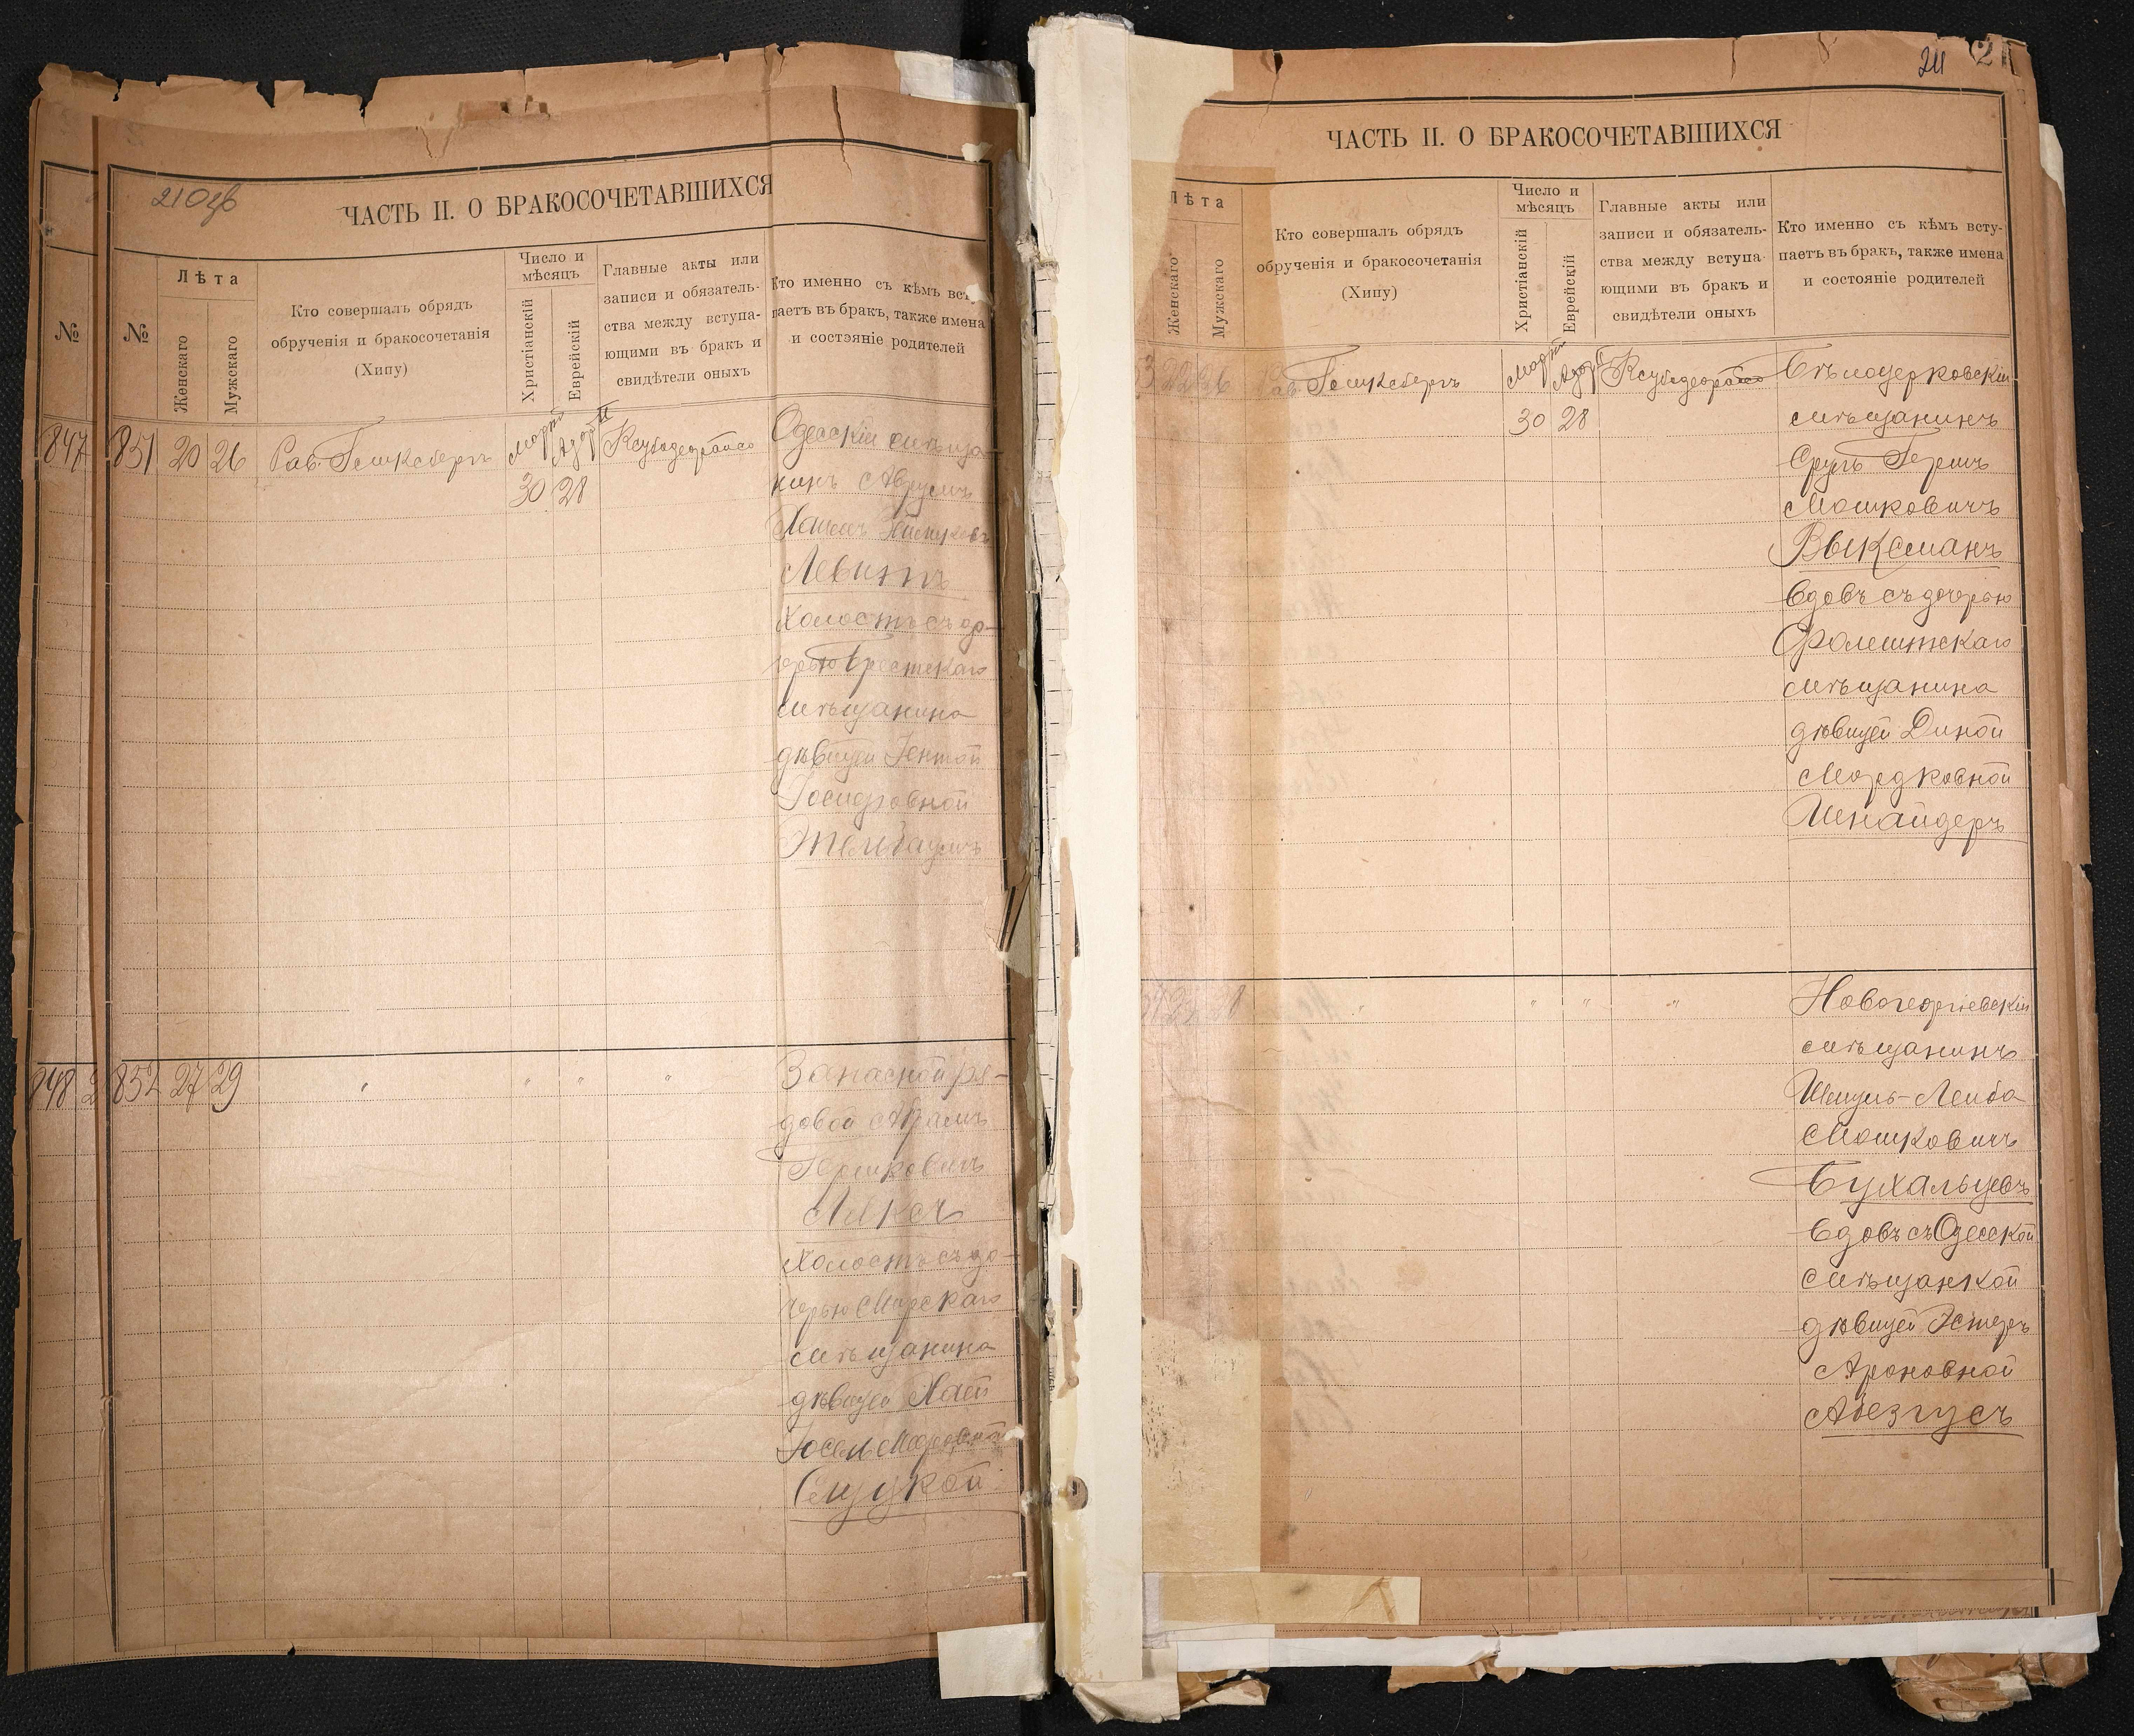 210об
ЧАСТЬ II. О БРАКОСОЧЕТАВШИХСЯ
№
№
Лѣта
Женскаго
Мужскаго
Кто совершалъ обрядъ
обрученія и бракосочетанія
(Хипу)
Число и
мѣсяцъ
Христіанскій
Еврейскій
Главные акты или
записи и обязатель-
ства между вступа-
ющими въ бракъ и
свидѣтели оныхъ
Кто именно съ кѣмъ всту-
паетъ въ бракъ, также имена
и состояніе родителей
847
851 20 26
Рав.
Мартъ
30
Адаръ II
28
Одесскій мѣща
нинъ Аврумъ
Левитъ
холостъ съ до-
черью Брестскаго
мѣщанина
дѣвицей Гентой
848
852 27 29
" " " "
Запасной ря-
довой Абрамъ
Гершковичъ
холостъ съ до-
черью Мирскаго
мѣщанина
дѣвицей Хаей
Слуцкой
211
ЧАСТЬ II. О БРАКОСОЧЕТАВШИХСЯ
Лѣта
Женскаго
Мужскаго
Кто совершалъ обрядъ
обрученія и бракосочетанія
(Хипу)
Число и
мѣсяцъ
Христіанскій
Еврейскій
Главные акты или
записи и обязатель-
ства между вступа-
ющими въ бракъ и
свидѣтели оныхъ
Кто именно съ кѣмъ всту-
паетъ въ бракъ, также имена
и состояніе родителей
Рав.
Мартъ
30
Адаръ II
28
Бѣлоцерковскій
мѣщанинъ
Сруль Гершъ
Мошковичъ
Выксманъ
вдовъ съ дочерью
Фалештскаго
мѣщанина
дѣвицей Диной
Мордковной
Шнайдеръ
" " " "
Новогеоргіевскій
мѣщанинъ
Шмуль-Лейба
Мошковичъ
Бухальцевъ
вдовъ съ Одесской
мѣщанкой
дѣвицей Эстеръ
Ароновной
Абезгусъ